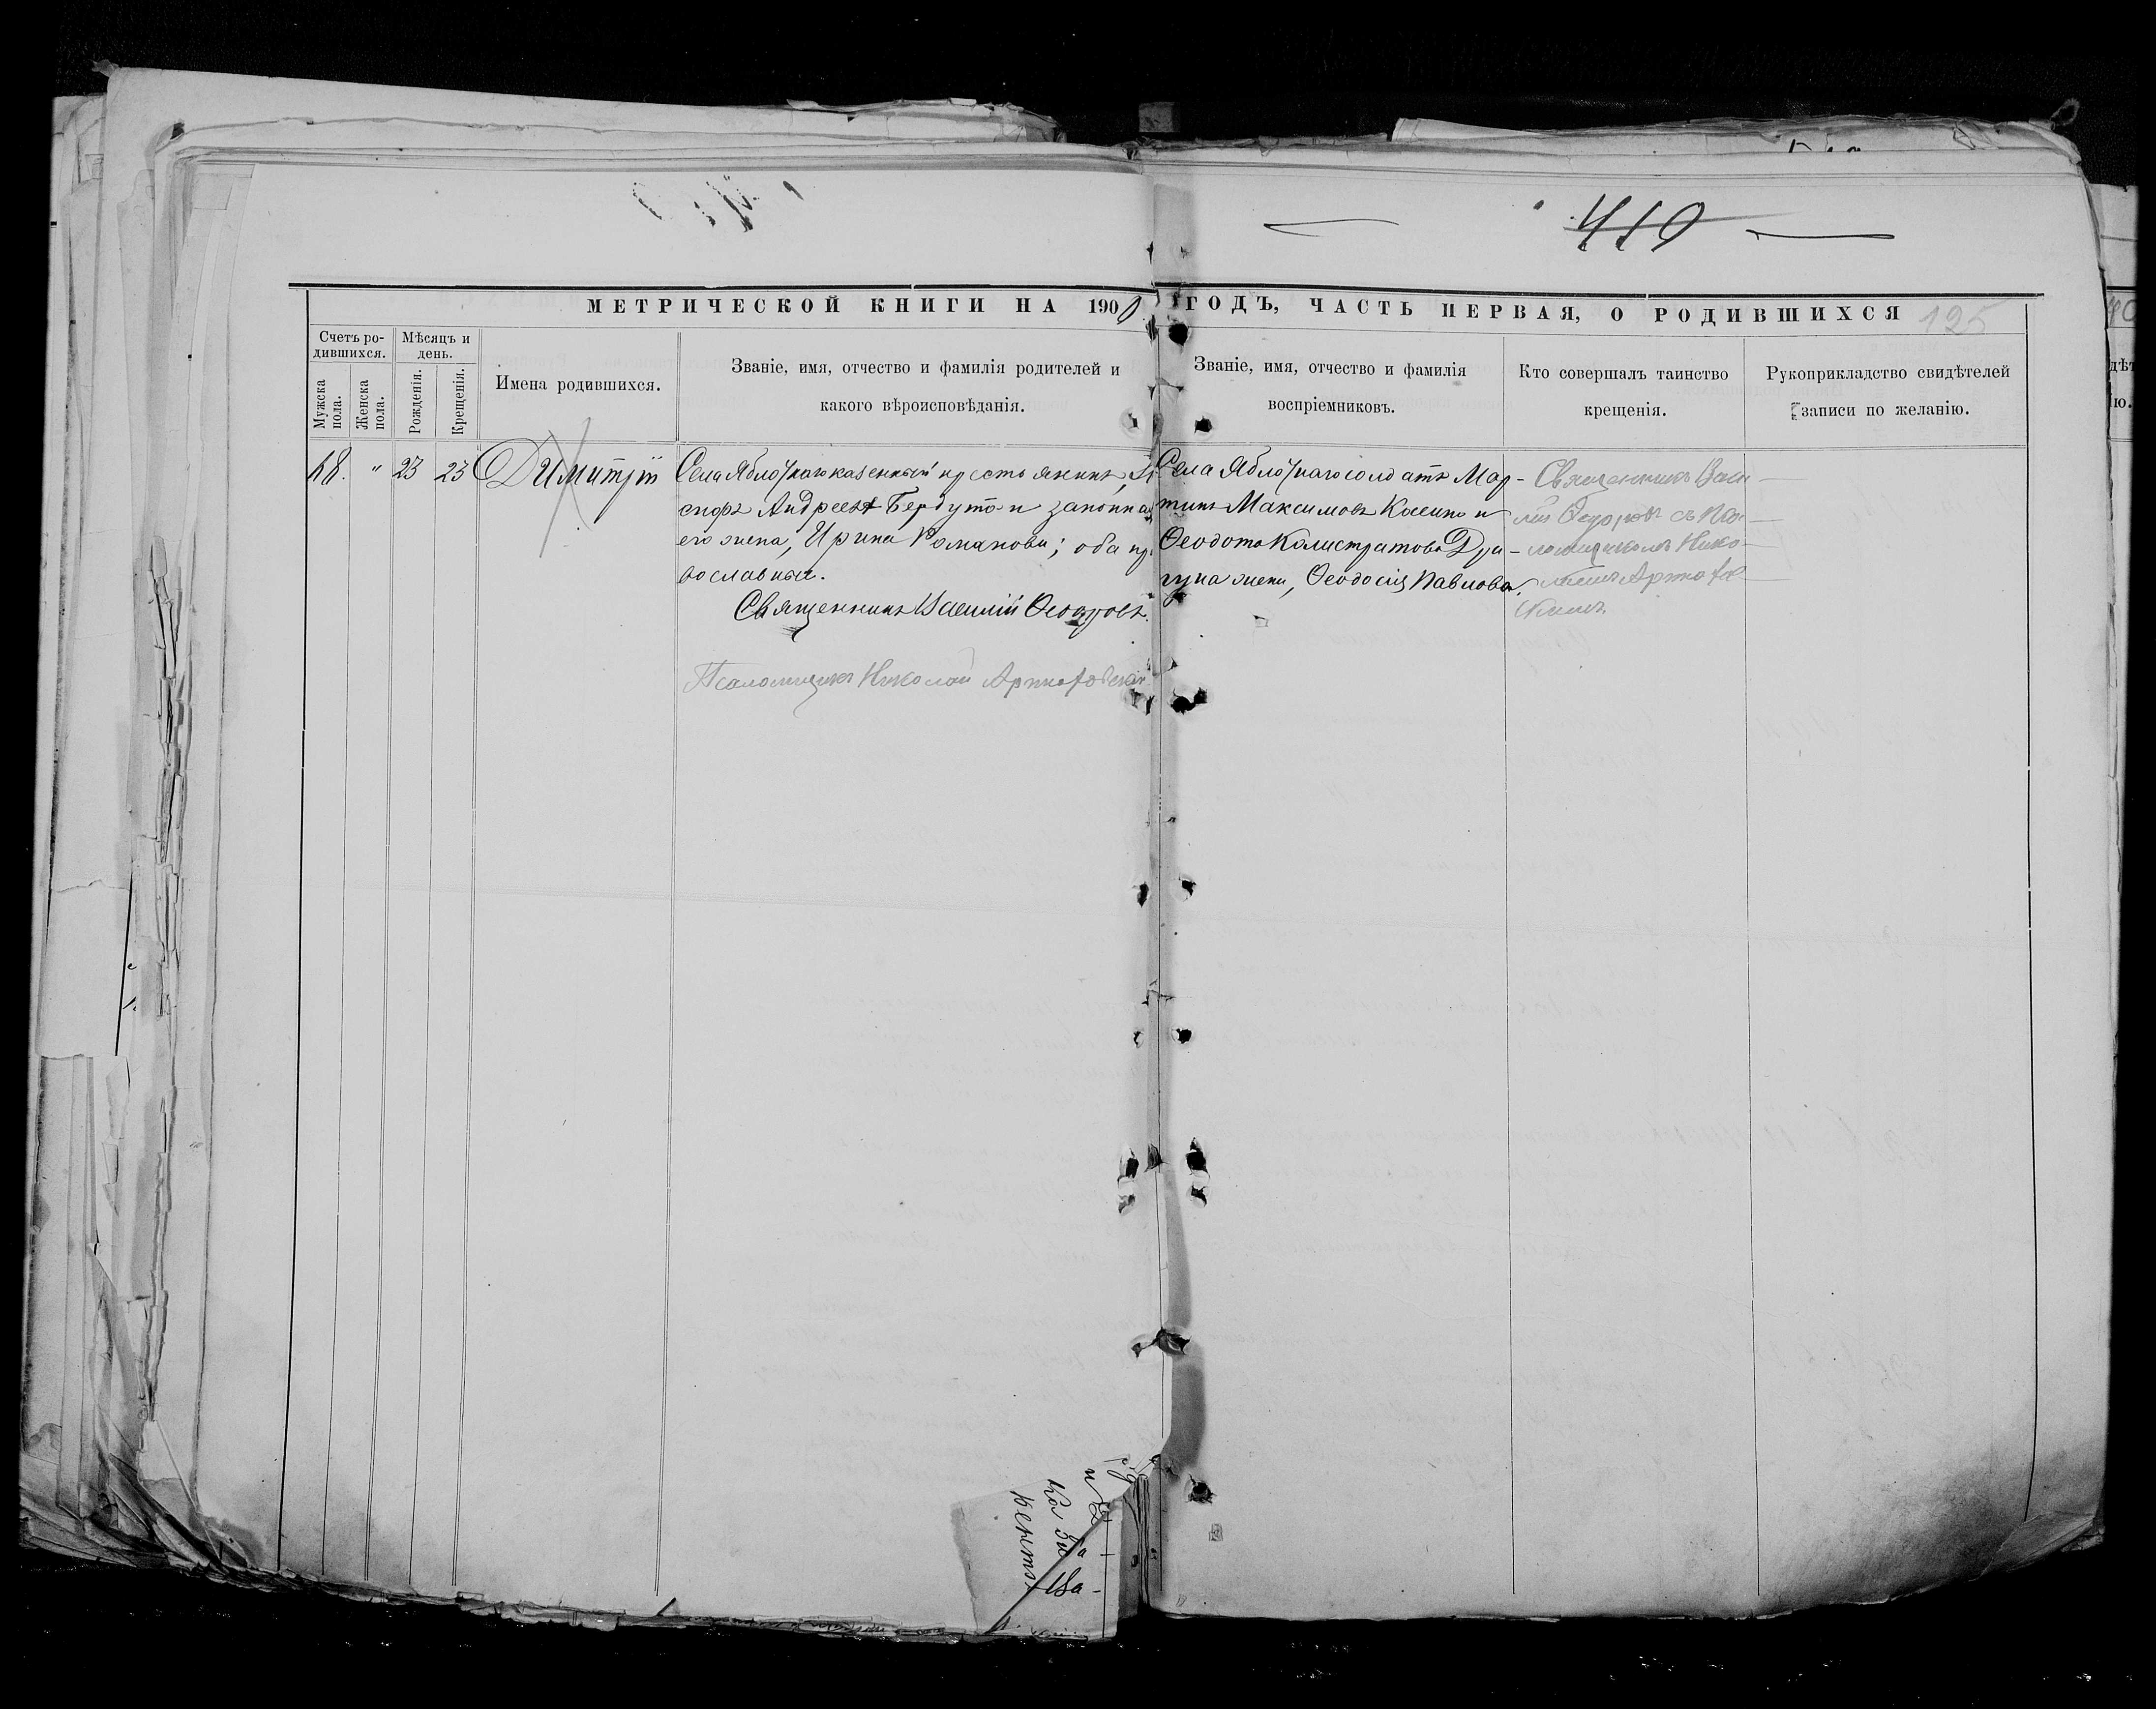 410
125
МЕТРИЧЕСКОЙ КНИГИ НА 1900 ГОДЪ, ЧАСТЬ ПЕРВАЯ, О РОДИВШИХСЯ
Счетъ ро-
дившихся.
Мужска
пола.
Женска
пола.
Мѣсяцъ и
день.
Рожденія.
Крещенія.
Имена родившихся.
Званіе, имя, отчество и фамилія родителей и
какого вѣроисповѣданія.
Званіе, имя, отчество и фамилія
воспріемниковъ.
Кто совершалъ таинство
крещенія.
Рукоприкладство свидѣтелей
записи по желанію.
68. " 23 23 Димитрій
Села Яблочнаго казенный крестьянинъ,
Андреевъ Бердутъ и законная
его жена, Ирина Романова; оба пр
вославные.
Священникъ Василій Ѳеодоровъ.
Псаломщикъ Николай
Села Яблочнаго солдатъ Мар-
тинъ Максимовъ Косенко и
Ѳеодота Калистратова Дра-
гуна жена, Ѳеодосія Павлова.
Священникъ Васи-
лій Ѳедоровъ съ Пса-
ломщикомъ Нико-
лаемъ
скимъ